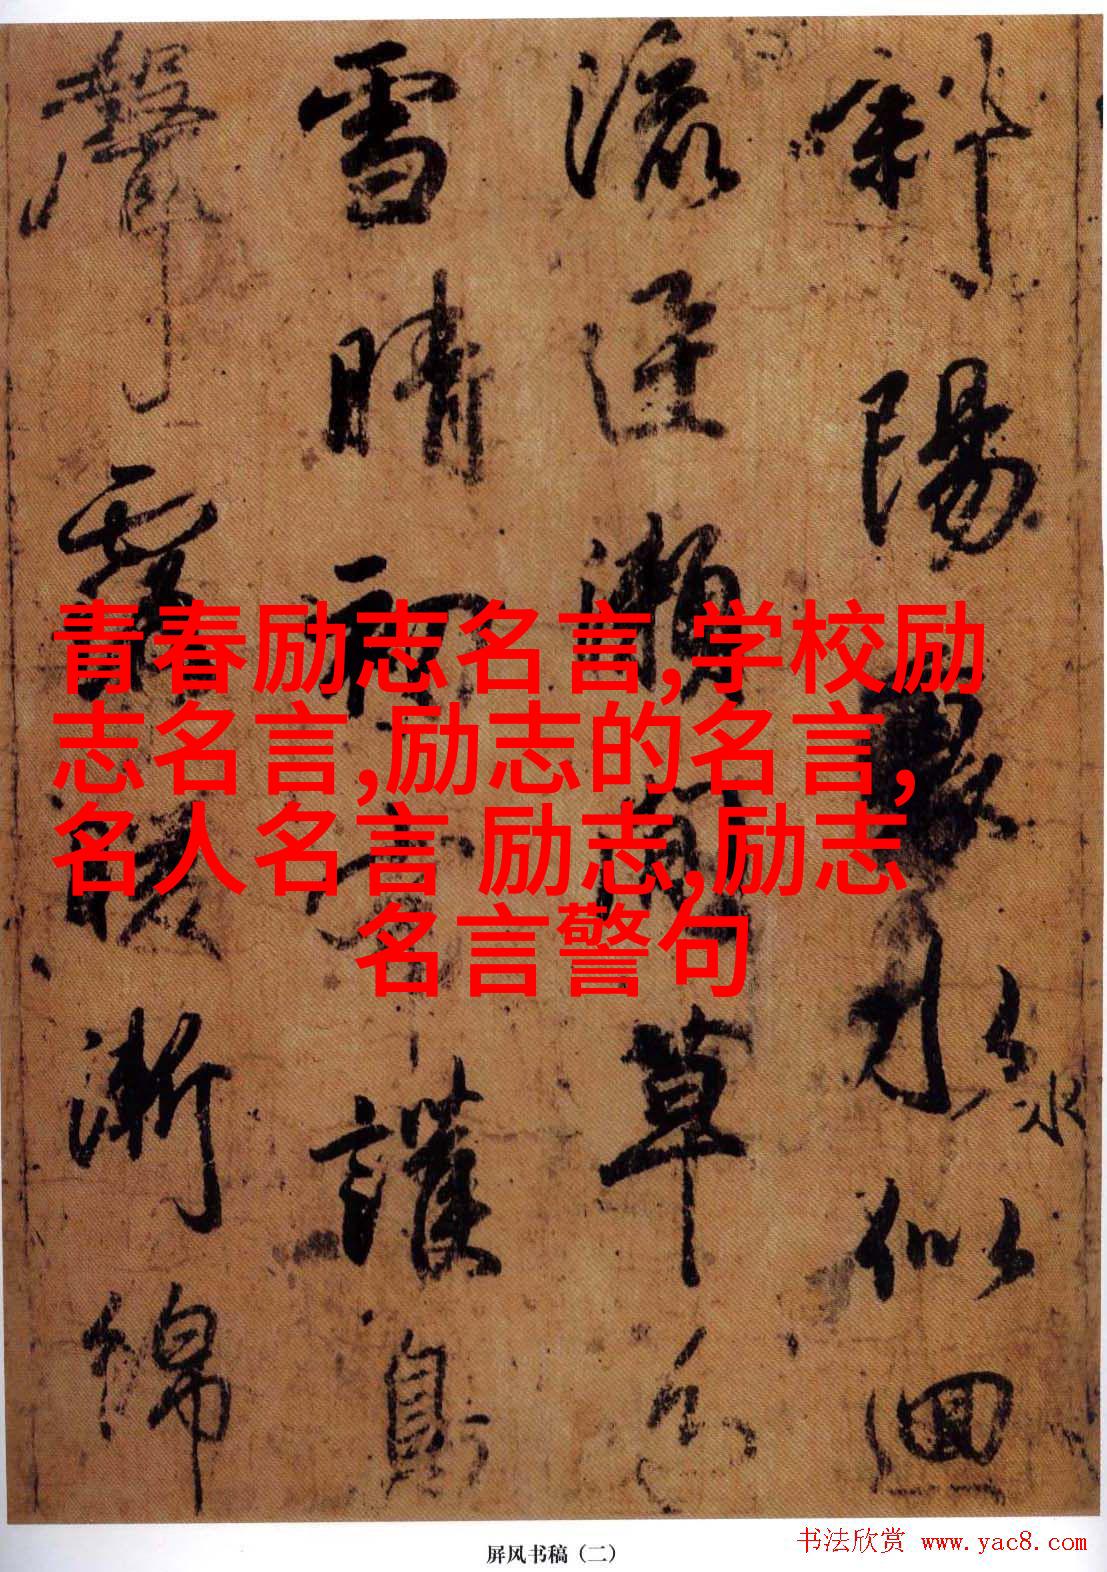 斜陽水似洄
草色
雪晴初護鳥
聲露暖漸綿
青春励志名言,学校励
志名言,励志的名言,
名人名言 励志,励志
名言警句
屏风书稿（二）
书法欣赏 www.yac8.com